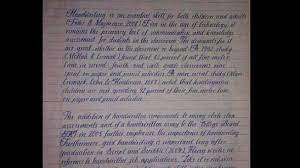 Handwriting is an essential skill for both children and adults
(Feder & Majnemer, 2007). Even in the age of technology, it
remains the primary tool of communication and knowledge
assessment for students in the classroom. The demands for it
are great, whether in the classroom or beyond. A 1992 study
(McHale & Cermak) found that 85 percent of all fine motor
time in second, fourth and sixth grade classrooms was
spent on paper and pencil activities. A more recent study (Marr,
Cermak, Cohn & Henderson, 2003) noted that kindergarten
children are now spending 42 percent of their fine motor time
on paper and pencil activities.
The addition of handwritten components to many state
assessments and of a handwritten essay to the College Board
SAT in 2005 further emphasize the importance of handwriting.
Furthermore, good handwriting is important long after
graduation
reference to handwritten job applications.